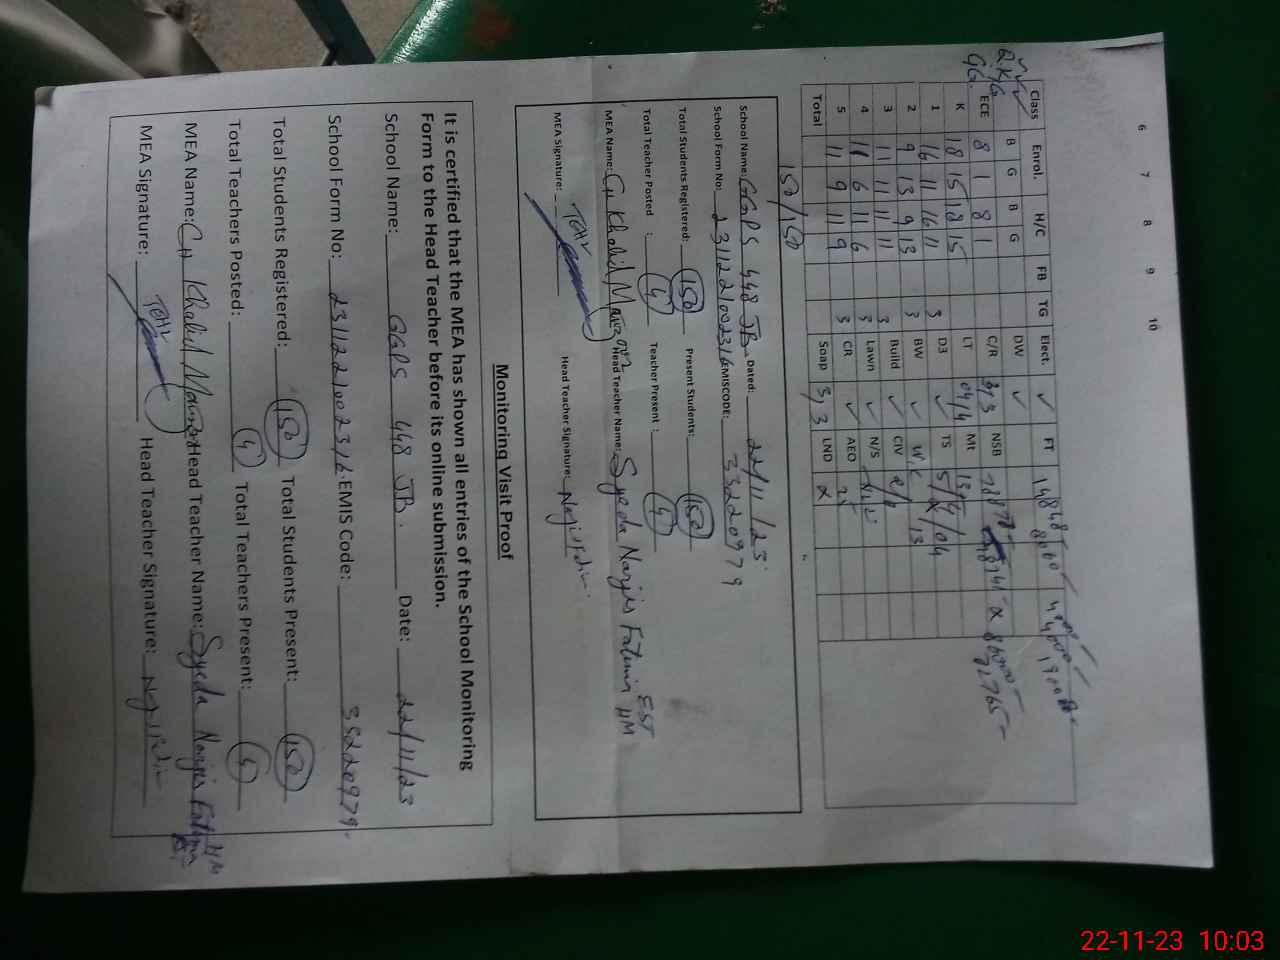 6 7 8 9 10
Class Enrol. H/C FB YG Elect. ✓ FT 14848
B G B G DW ✓
ECE 8 1 8 1 C/R 3/3 NSB
K 18 15 18 15 LT 04/4 Mt
1 16 11 16 11 3 D3 ✓ TS 5/4/04
2 9 13 9 13 3 BW ✓
3 11 11 11 11 3 Build ✓ CIV
4 11 6 11 6 3 Lawn ✓ N/S
5 11 9 11 9 3 CR ✓ AEO
Total Soap 3/3 LND
150/150
School Name: GGPS 448 JB Dated: 22/11/23
School Form No: 2311221002316 EMISCODE: 33220979
Total Students Registered: 150 Present Students: 150
Total Teacher Posted : 4 Teacher Present : 4
MEA Name: Ch Khalid Manzoor Head Teacher Name: Syeda Narjis Fatima EST HM
MEA Signature: Head Teacher Signature:
Monitoring Visit Proof
It is certified that the MEA has shown all entries of the School Monitoring
Form to the Head Teacher before its online submission.
School Name: GGPS 448 JB. Date: 22/11/23
School Form No: 2311221002316 EMIS Code: 33220979
Total Students Registered: 150 Total Students Present: 150
Total Teachers Posted: 4 Total Teachers Present: 4
MEA Name: Ch Khalid Manzoor Head Teacher Name: Syeda Narjis Fatima HM
MEA Signature: Head Teacher Signature:
22-11-23 10:03